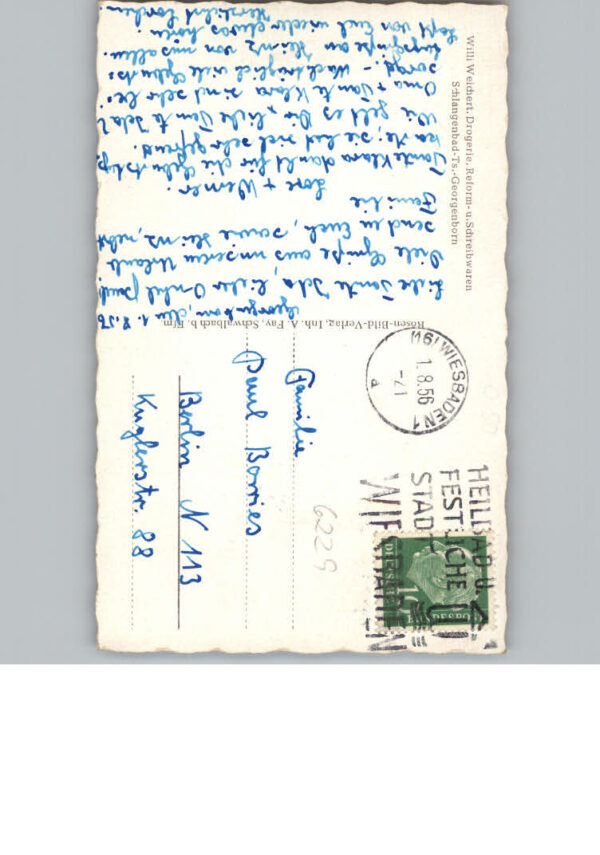 Willi Weichert, Drogerie, Reform- u. Schreibwaren
Schlangenbad-Ts.-Georgenborn
Rosen-Bild-Verlag, Inh. A. Fay, Schwalbach b. Ffm
Georgenborn, den 1.8.56
Liebe Tante Ida, lieber Onkel Paul!
Viele Grüße aus unserem Urlaub
senden Euch, sowie Heinz, nebst
Familie
Lore + Werner.
Tante Klara dankt für die Geburtstags-
karte; sie hat sich sehr gefreut.
Wie geht es Dir, liebe Tante Ida?
Oma + Tante Klara sind sehr be-
sorgt. – Nachträglich viele Geburts-
tagsgrüße an Heinz von uns allen.
Laßt von Euch wieder etwas hören
Herzlichst
(16) WIESBADEN 1
1.8.56
a
HEILBAD U.
FESTLICHE
STADT
WIESBADEN
Familie
Paul Borries
Berlin N 113
Kuglerstr. 88
6229